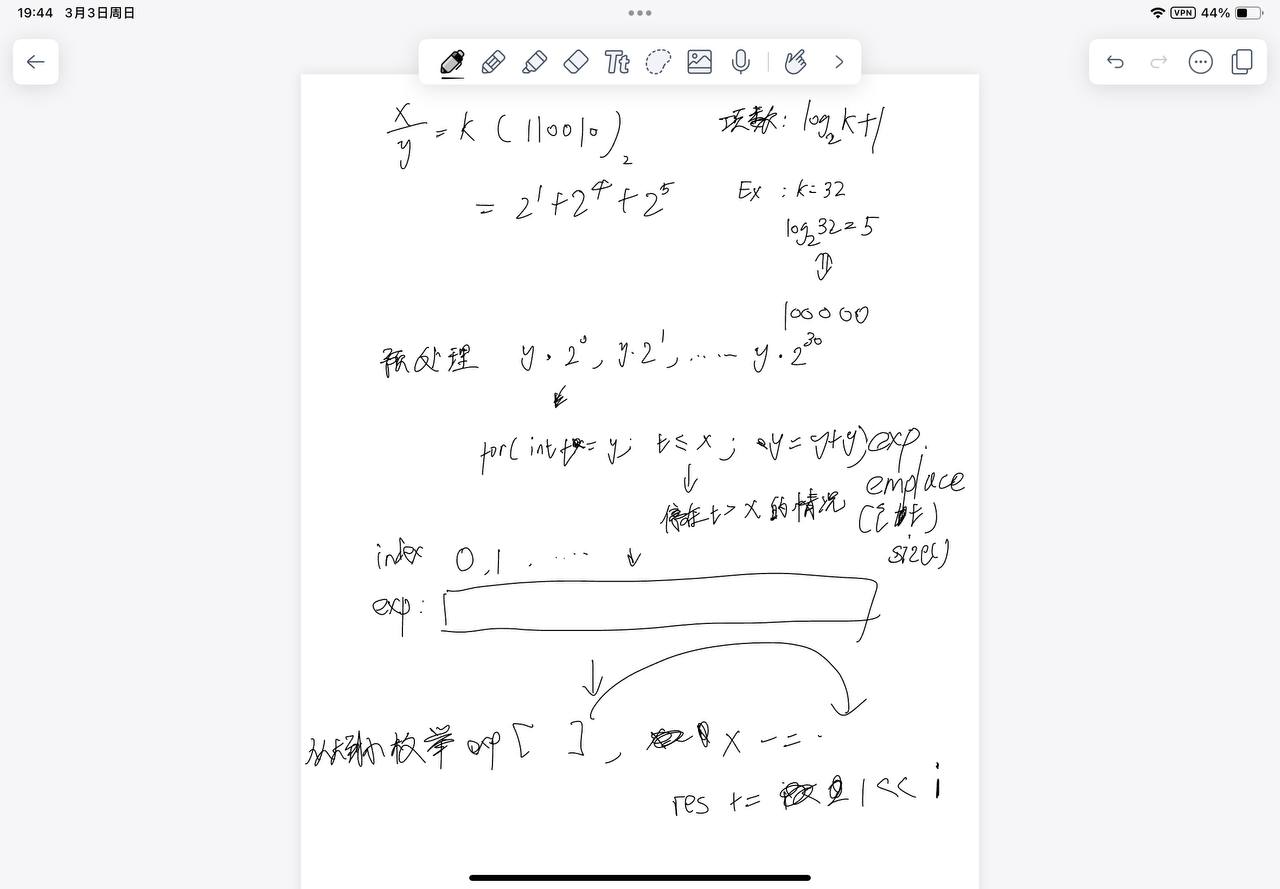 19:44 3月3日周日
VPN 44%
Tt
x/y = k (110010)₂
项数: log₂k+1
= 2¹+2⁴+2⁵
Ex : k=32
log₂32=5
⇓
100000
预处理 y·2⁰, y·2¹, ······ y·2³⁰
for(int t= y; t≤x; y=y+y) exp.
emplace
停在t>x的情况
size()
index 0,1. ····
exp:
从大到小枚举 exp[ ], x -= ·
res += 1<<i